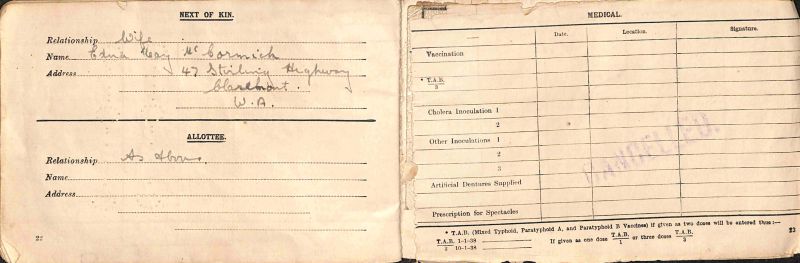 NEXT OF KIN.
Relationship Wife
Name Edna May McCormick
Address 47 Stirling Highway
Claremont.
W.A.
ALLOTTEE.
Relationship As Above.
Name
Address
22
MEDICAL.
Date. Location. Signature.
Vaccination
* T.A.B.
3
Cholera Inoculation 1
2
Other Inoculations 1
2
3
CANCELLED.
Artificial Dentures Supplied
Prescription for Spectacles
* T.A.B. (Mixed Typhoid, Paratyphoid A, and Paratyphoid B Vaccines) if given as two doses will be entered thus:—
T.A.B. 1-1-38
2 10-1-38
If given as one dose T.A.B. 1 or three doses T.A.B. 3
23